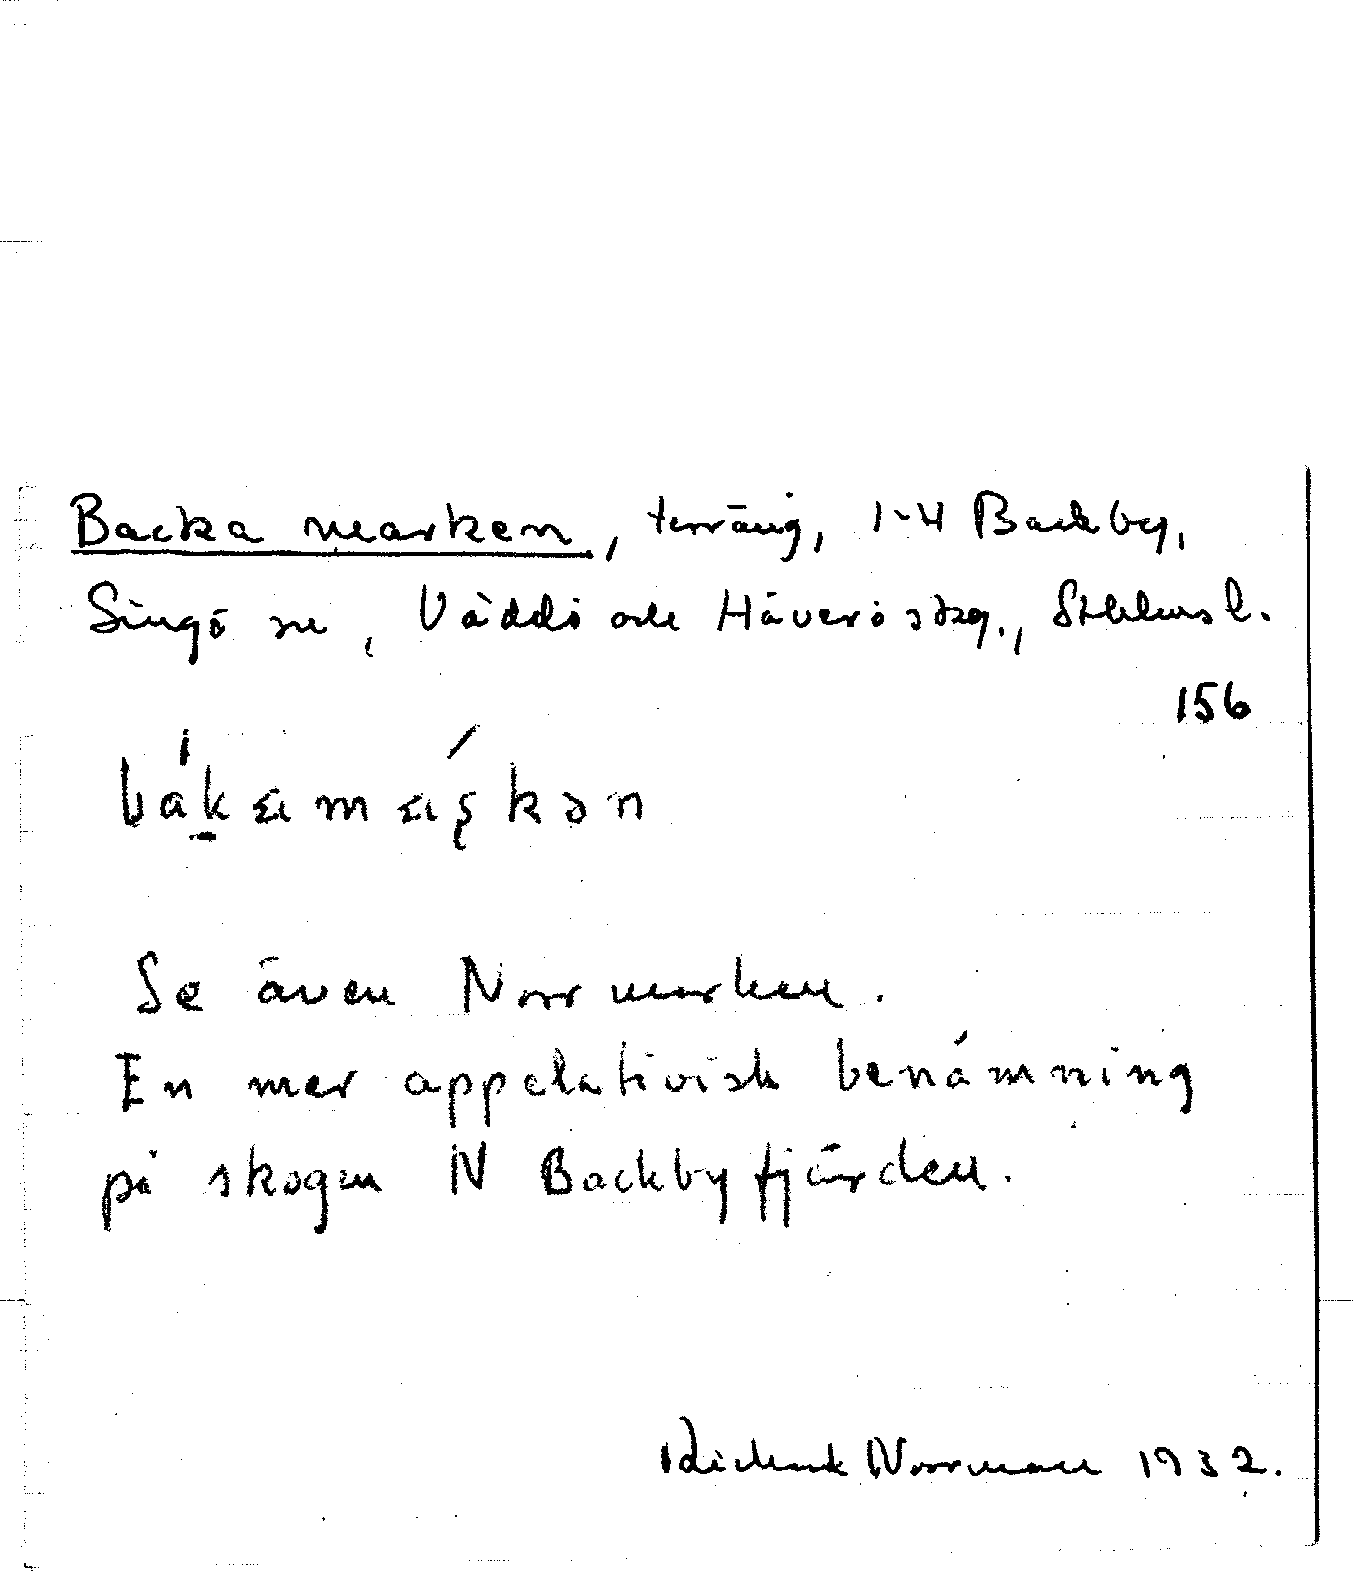 Backa marken, terräng, 1-4 Backby,
Singö sn, Väddö och Häverö skg., Sthlms l.
156
Se även Norrmarken.
En mer appelativisk benämning
på skogen N Backbyfjärden.
Norrman 1932.